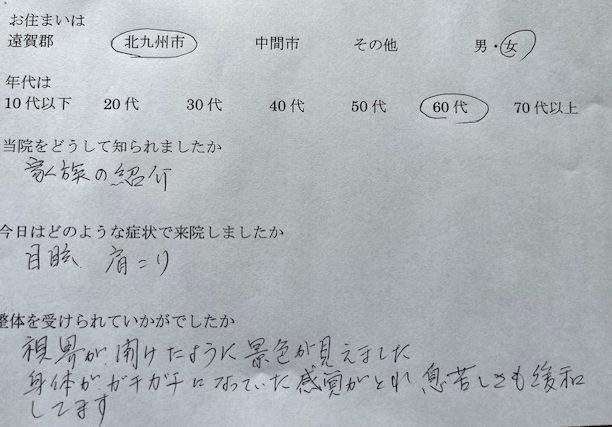 お住まいは
遠賀郡 北九州市 中間市 その他 男・女
年代は
10代以下 20代 30代 40代 50代 60代 70代以上
当院をどうして知られましたか
家族の紹介
今日はどのような症状で来院しましたか
目眩 肩こり
整体を受けられていかがでしたか
視界が開けたように景色が見えました
身体がガチガチになっていた感覚がとれ 息苦しさも緩和
してます